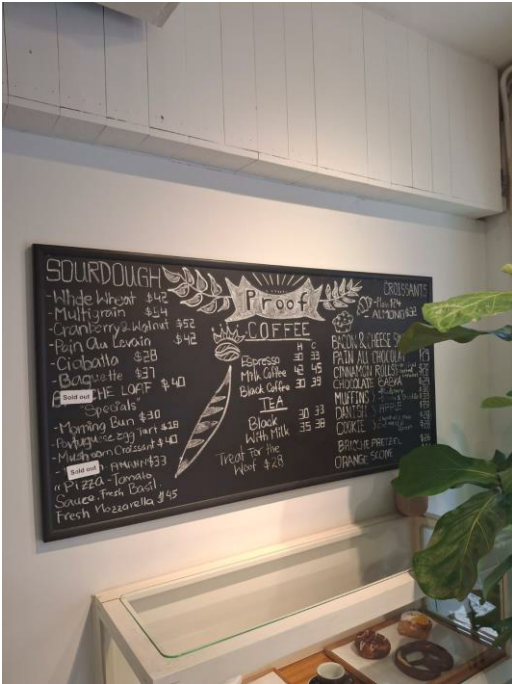 SOURDOUGH
- Whole Wheat $42
- Multigrain $54
- Cranberry & Walnut $52
- Pain Au Levain $42
- Ciabatta $28
- Baguette $37
THE LOAF $40
Sold out
"Specials"
- Morning Bun $30
- Portuguise Egg Tart $18
- Mushroom Croissant $40
Sold out
AMANN $33
"Pizza - Tomato
Sauce, Fresh Basil.
Fresh Mozzarella $45
Proof
COFFEE
H C
Espresso 30 33
Milk Coffee 42 45
Black Coffee 30 39
TEA
Black 30 33
With Milk 35 38
Treat For the
Woof $28
CROISSANTS
- Plain $24
- ALMOND $32
BACON & CHEESE
PAIN AU CHOCOLAT
CINNAMON ROLLS
CHOCOLATE BABKA
MUFFINS
DANISH APPLE
COOKIE
BRIOCHE PRETZEL
ORANGE SCONE